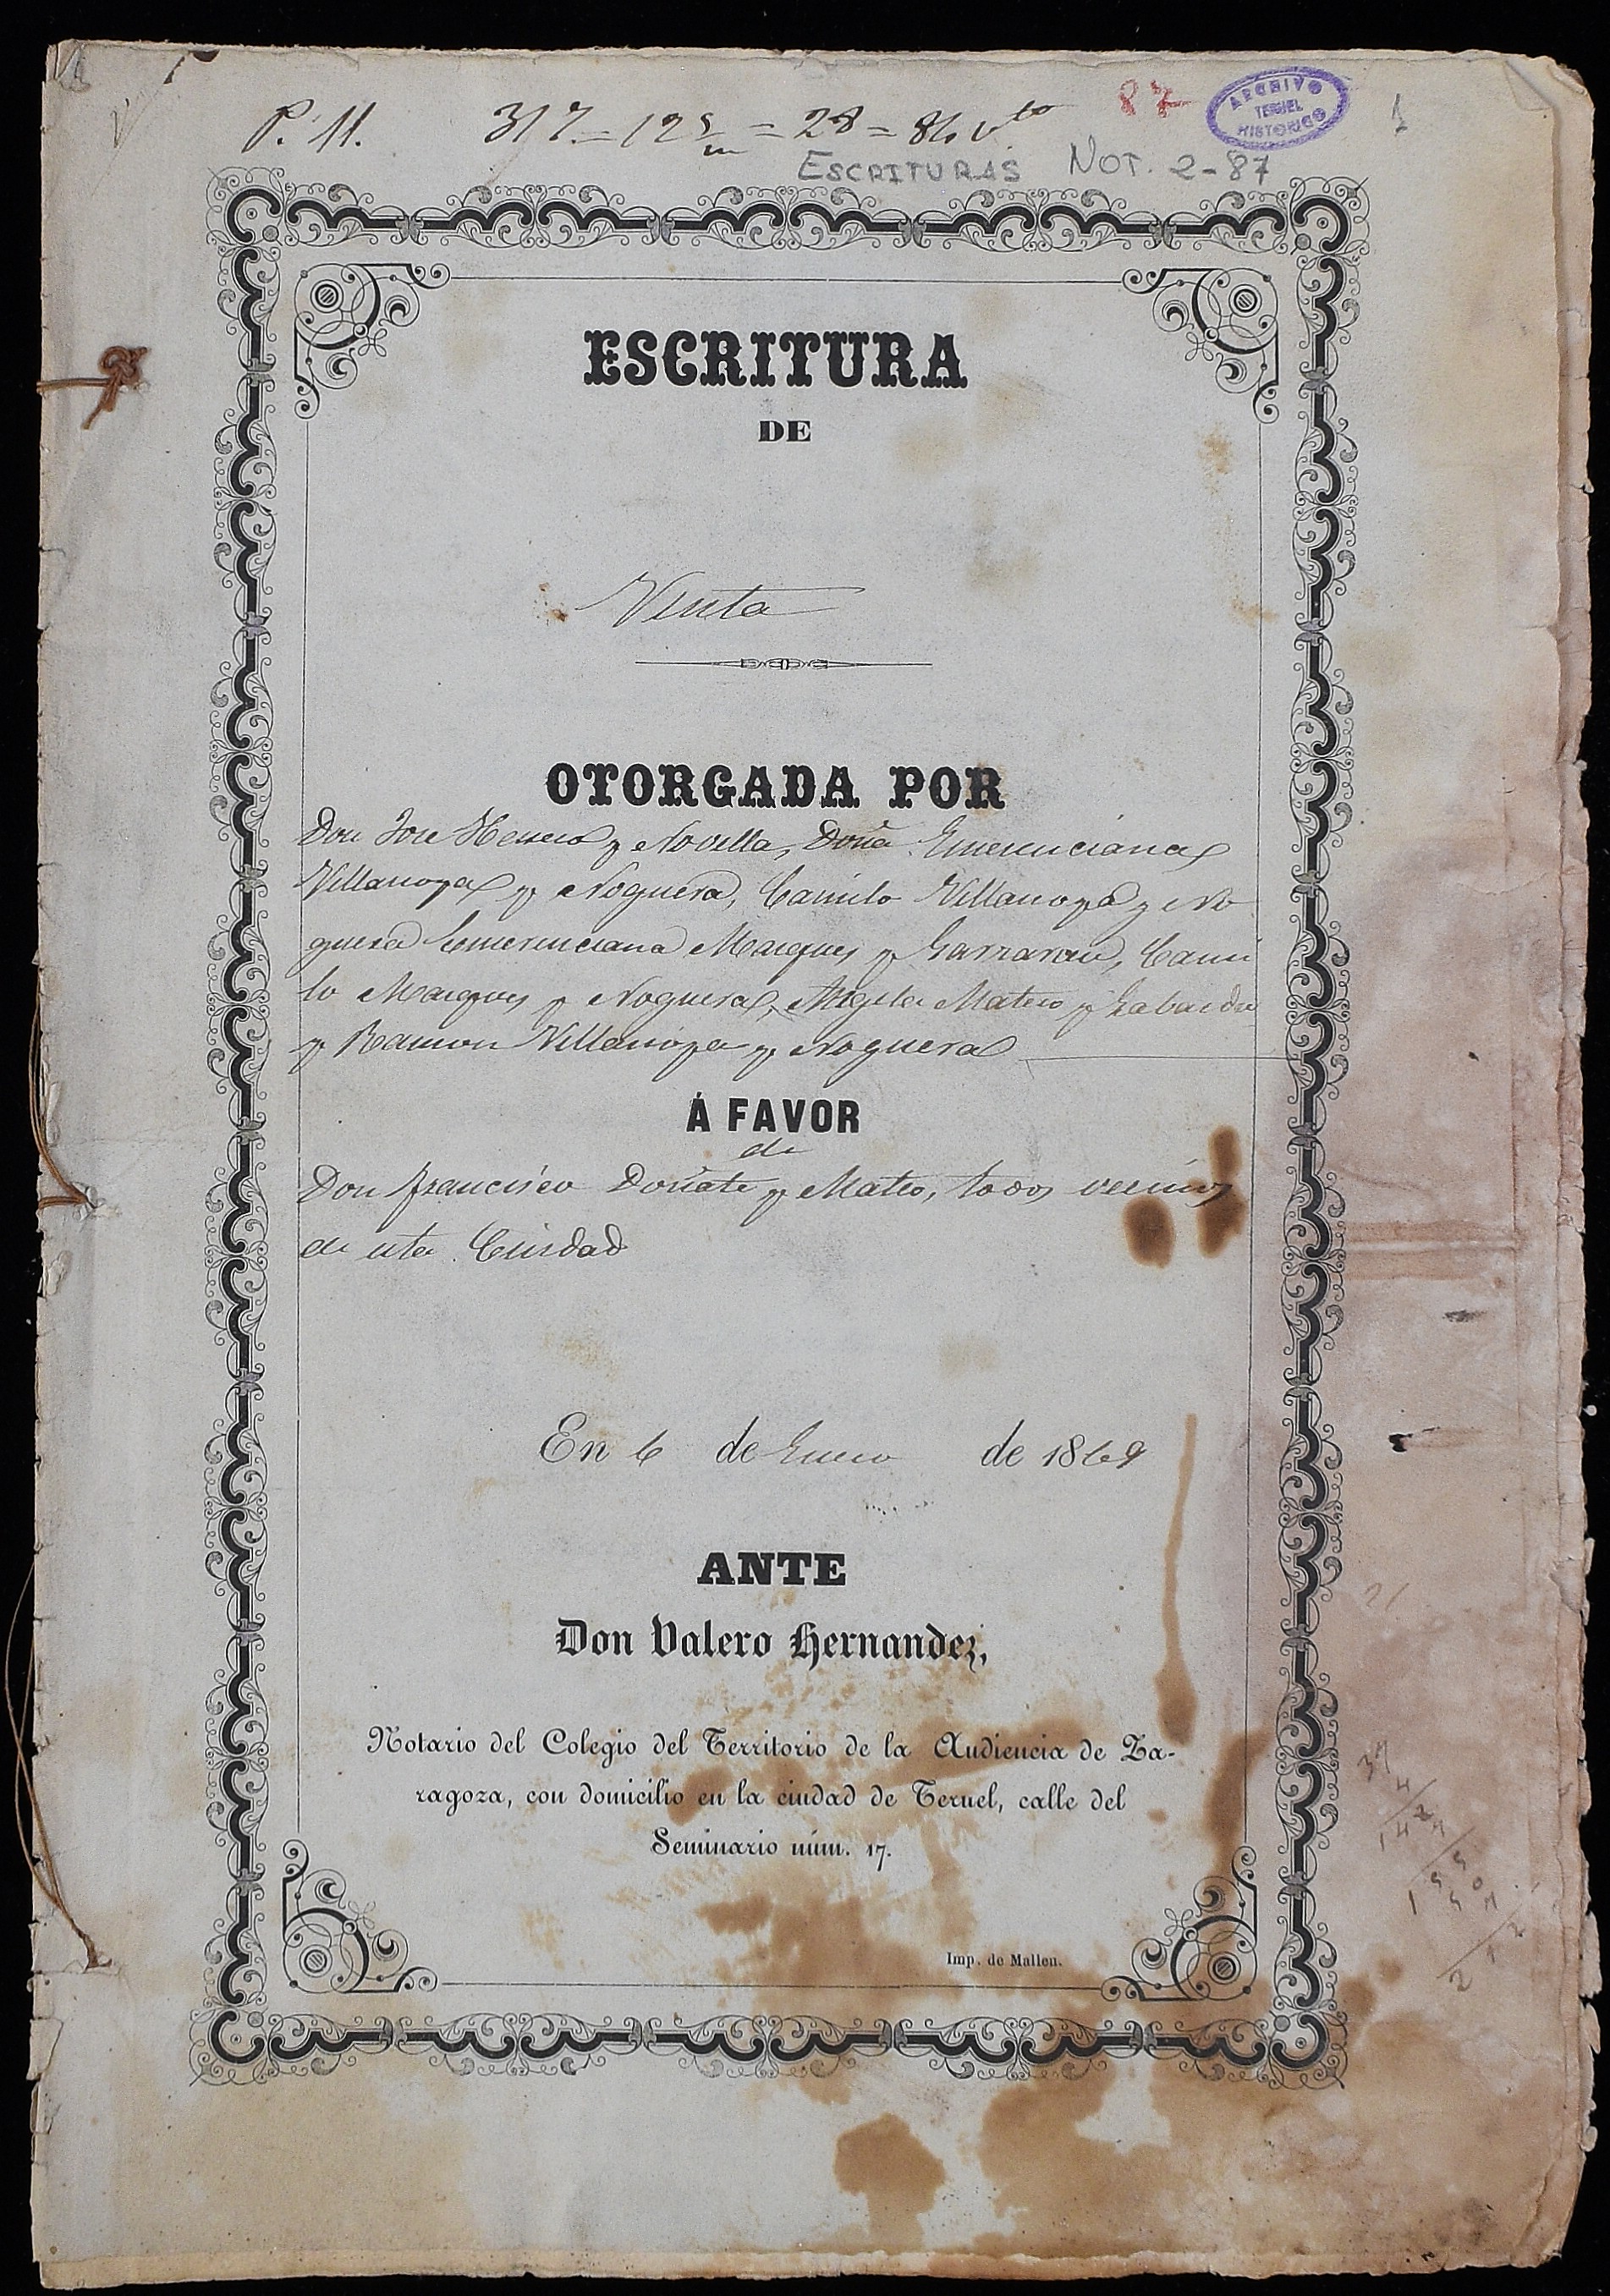 P. 11. 317.= 12 = 28 = 86 vto
87
ARCHIVO
TERUEL
HISTORICO
1
ESCRITURAS NOT. 2-87
ESCRITURA
DE
Venta
OTORGADA POR
Don Jose Herrero y Novella, Doña Emerenciana
Villarroya y Noguera, Camilo Villarroya y No
guera Emerenciana Marques y Garzaran, Cami
lo Marques y Noguera, Angela Mateo y Labaidu
y Ramon Villarroya y Noguera
Á FAVOR
de
Don Francisco Doñate y Mateo, todos vecinos
de esta Ciudad
En 6 de Enero de 1869
ANTE
Don Valero Hernandez,
Notario del Colegio del Territorio de la Audiencia de Za-
ragoza, con domicilio en la ciudad de Teruel, calle del
Seminario núm. 17.
Imp. de Mallen.